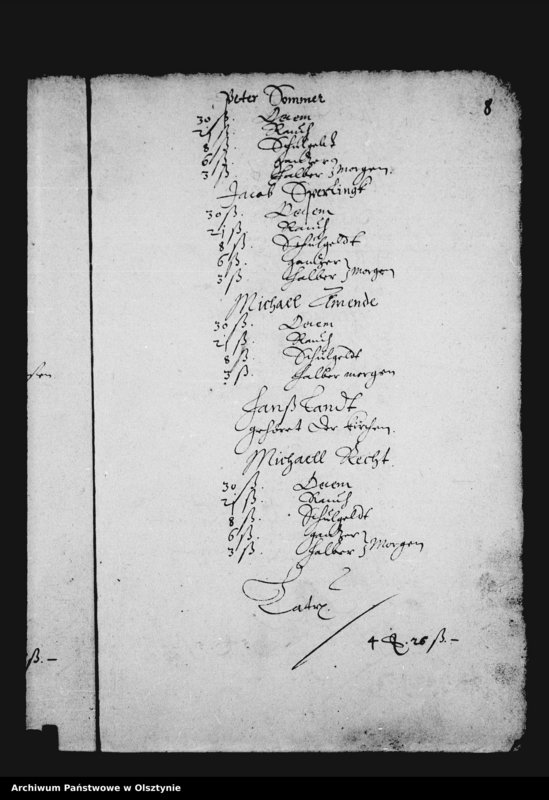 8
Peter Sommer
30 ß Decem
2½ ß Rauch
8 ß Schulgeldt
6 ß gantzer
3 ß halber } Morgen.
Jacob Sperlingk
30 ß. Decem
2½ ß. Rauch
8 ß. Schulgeldt
6 ß. gantzer
3 ß halber } Morgen
Michaell Amende
30 ß. Decem
2½ ß. Rauch
8 ß. Schulgeldt
3 ß. halber morgen
Hanß Landt
gehöret der kirchen.
Michaell Recht.
30 ß. Decem
2½ ß. Rauch
8 ß. Schulgeldt
6 ß. gantzer
3 ß. halber } Morgen
Latus.
4 26 ß. –
ß. –
Archiwum Państwowe w Olsztynie